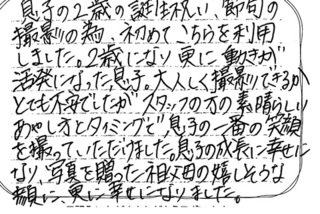 息子の2歳の誕生祝い、節句の
撮影の為、初めてこちらを利用
しました。2歳になり更に動きが
活発になった息子。大人しく撮影できるか
とても不安でしたがスタッフの方の素晴らしい
あやし方とタイミングで息子の一番の笑顔
を撮っていただけました。息子の成長に幸せに
なり、写真を贈った祖父母の嬉しそうな
顔に、更に幸せになりました。